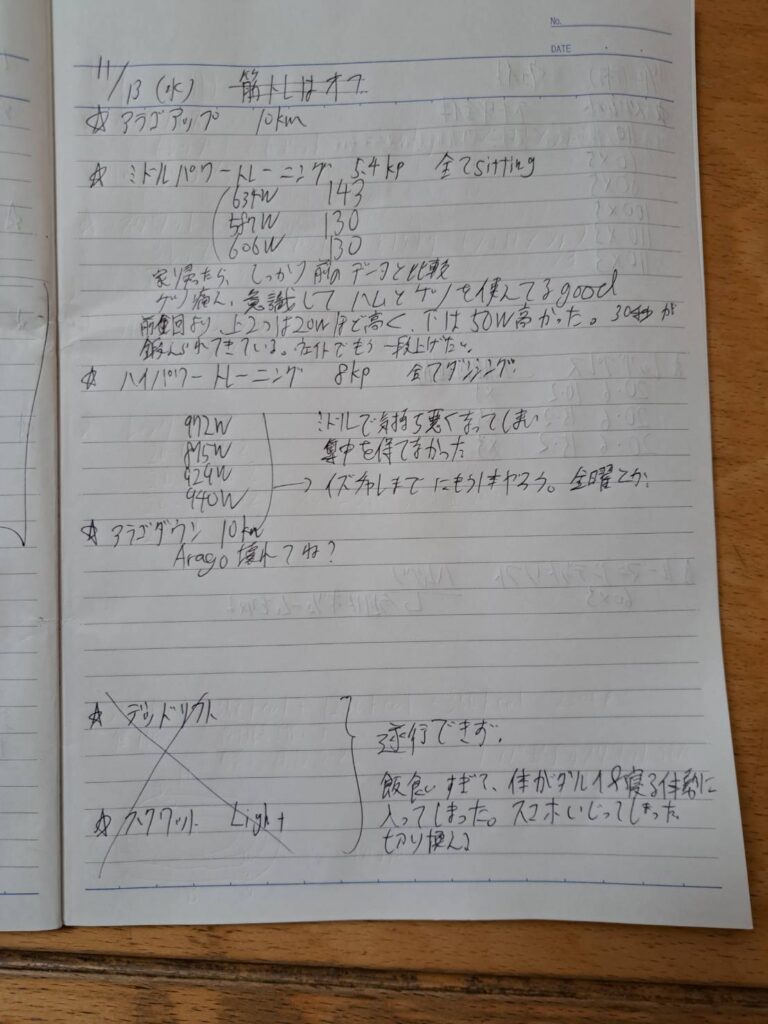 No.
DATE
11/13 (水) 筋トレはオフ
☆ アラゴアップ 10km
☆ ミドルパワートレーニング 5.4kp 全てsitting
634W 143
587W 130
606W 130
家帰ったら、しっかり前のデータと比較
意識してハムとケツを使えてるgood
前回より、上2つは20Wほど高く、下は50W高かった。30秒が
鍛えられてきている。もう一段上げたい。
☆ ハイパワートレーニング 8kp 全てダンシング
972W ミドルで気持ち悪くなってしまい
875W 集中を得てなかった
929W
940W → までにもう1本やろう。金曜とか。
☆ アラゴダウン 10km
Arago 壊れてね?
☆ デッドリフト
遂行できず。
飯食いすぎて、体がダルイ&寝る体勢に
☆ スクワット Light 入ってしまった。スマホいじってしまった
切り換える